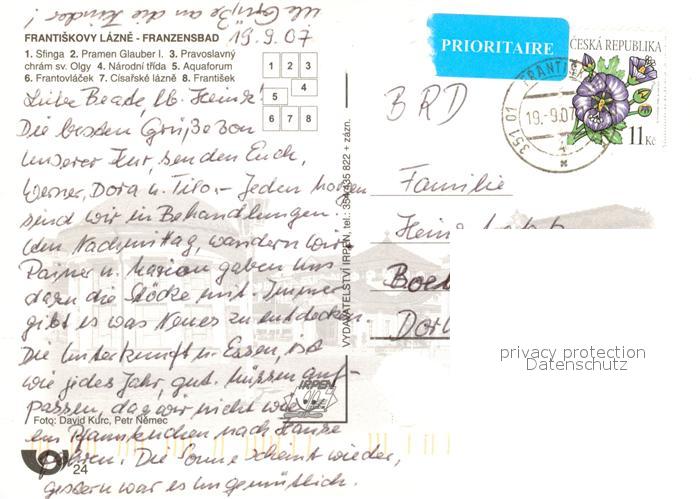 alle Grüße an die Kinder!
FRANTIŠKOVY LÁZNĚ - FRANZENSBAD 19.9.07
1. Sfinga 2. Pramen Glauber I. 3. Pravoslavný
chrám sv. Olgy 4. Národní třída 5. Aquaforum
6. Frantovláček 7. Císařské lázně 8. František
1 2 3
4
5
6 7 8
Liebe Beade, lb. Heinz!
Die besten Grüße von
unserer Kur, senden Euch,
Werner, Dora u. Tilo. - Jeden Morgen
sind wir in Behandlungen.
den Nachmittag, wandern wir
Rainer u. Marion gaben uns
dazu die Stöcke mit. Immer
gibt es was Neues zu entdecken.
Die Unterkunft u. Essen, ist
wie jedes Jahr, gut. Müssen auf-
passen, das wir nicht wie
ein Pfannkuchen nach Hause
Die Sonne scheint wieder,
gestern war es ungemütlich.
IRPEN
Foto: David Kurc, Petr Němec
24
VYDAVATELSTVÍ IRPEN, tel.: 354 435 822 + zázn.
PRIORITAIRE
ČESKÁ REPUBLIKA
11 Kč
351 01
19.-9.07
BRD
Familie
privacy protection
Datenschutz